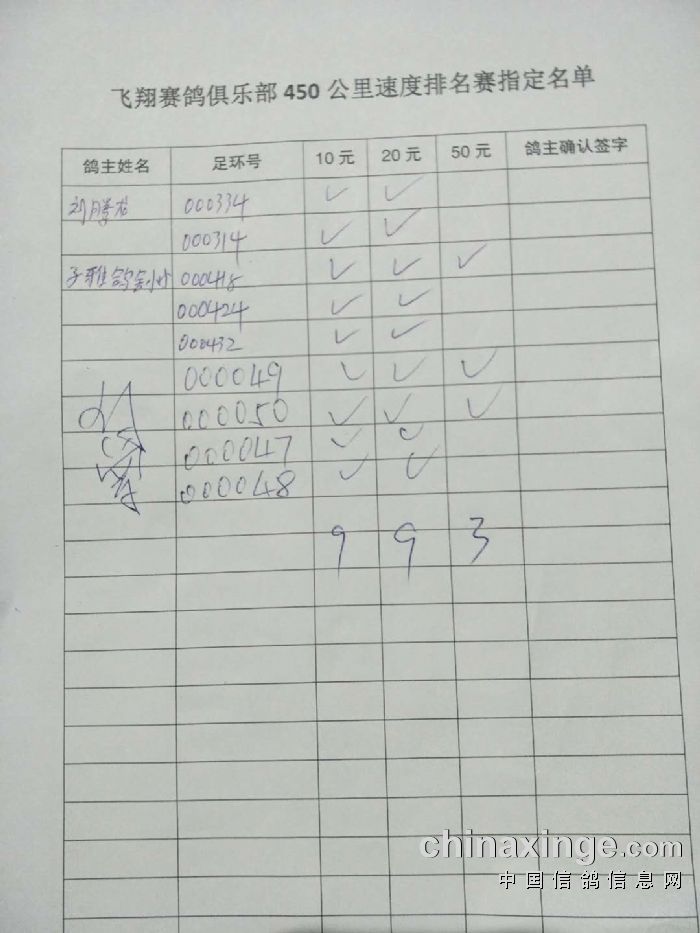 飞翔赛鸽俱乐部450公里速度排名赛指定名单
鸽主姓名 足环号 10元 20元 50元 鸽主确认签字
刘腾龙 000334 ✓ ✓
000314 ✓ ✓
子雅鸽舍 000418 ✓ ✓ ✓
000424 ✓ ✓
000432 ✓ ✓
000049 ✓ ✓ ✓
000050 ✓ ✓ ✓
000047 ✓ ✓
000048 ✓ ✓
9 9 3
chinaxinge.com
中国信鸽信息网